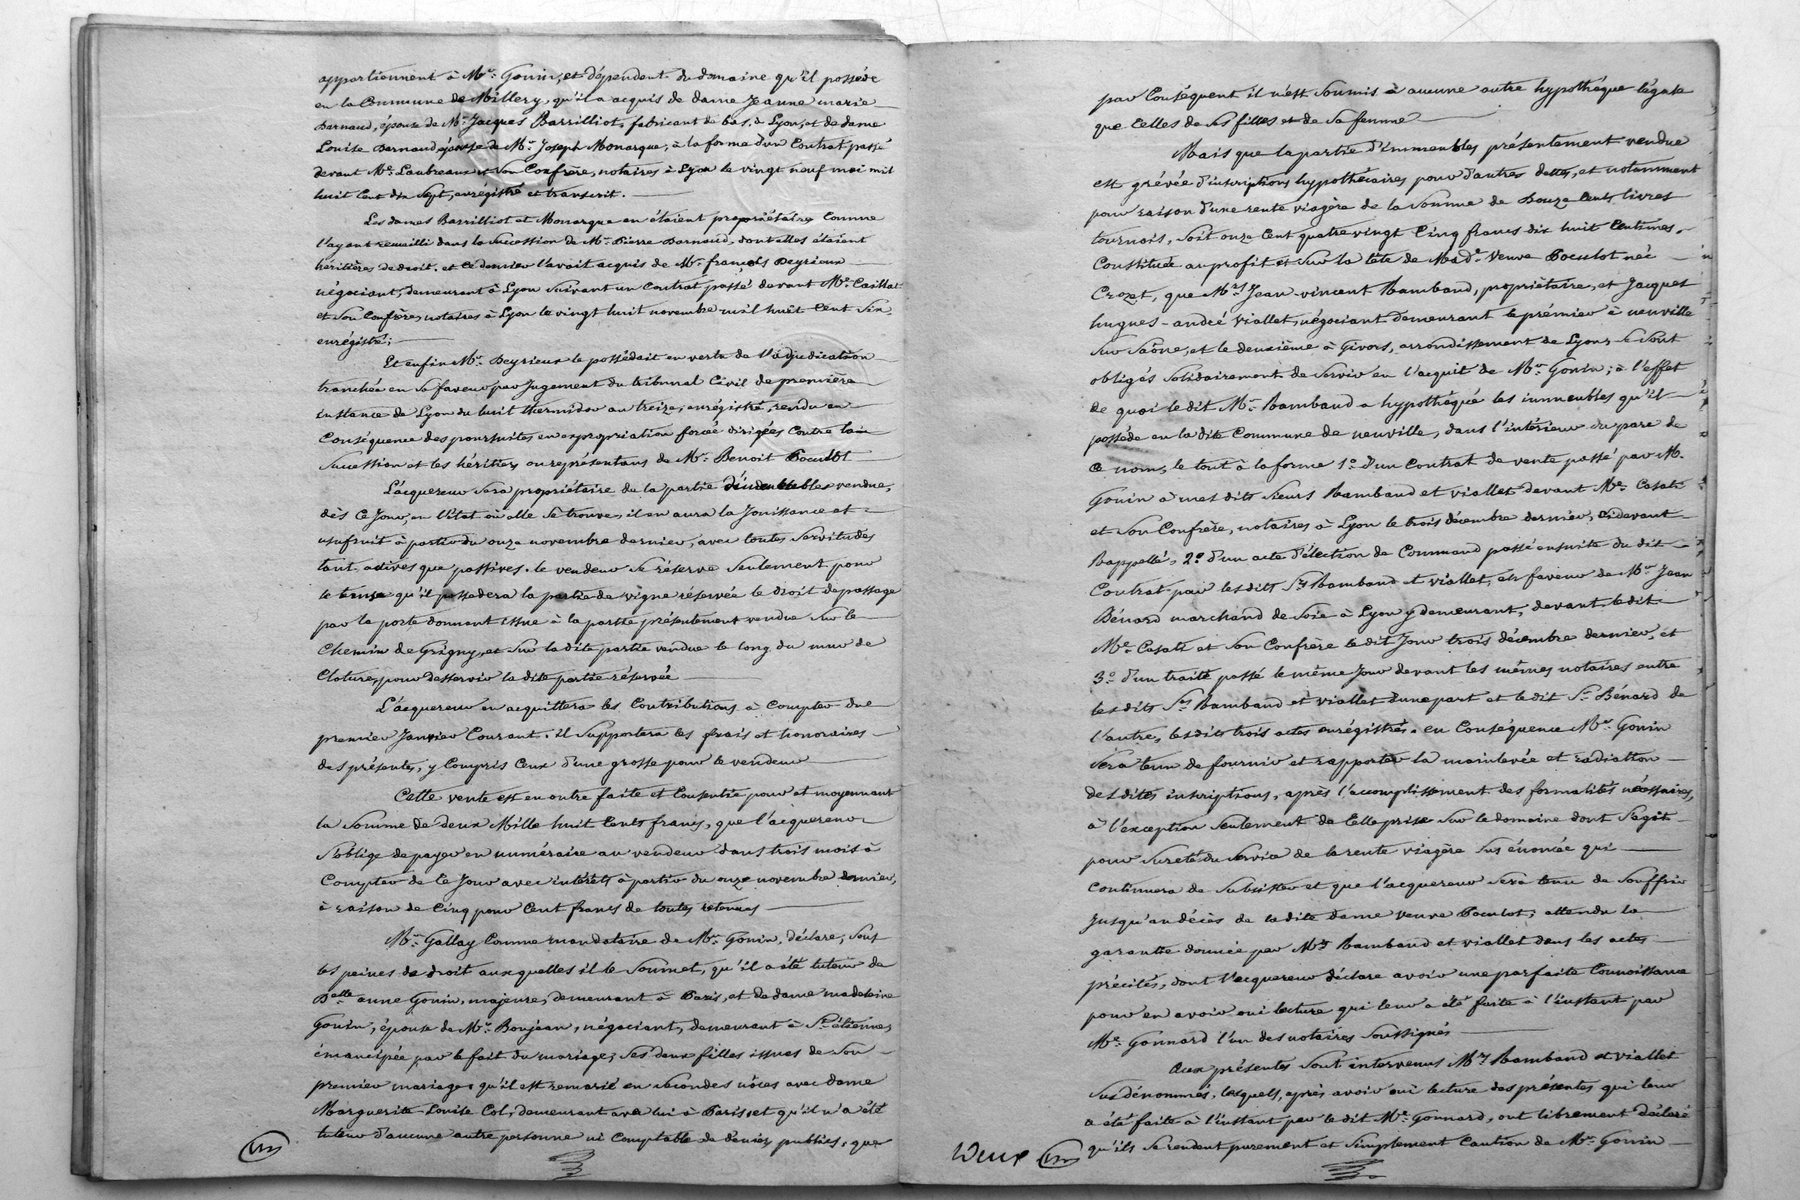 appartiennent à Mr. Gonin, et dépendent du domaine qu'il possède
en la Commune de Millery, qu'il a acquis de dame Jeanne marie
Barnaud, épouse de Mr. Jacques Barrilliot, fabricant de bas, à Lyon, et de dame
Louise Barnaud épouse de Mr. Joseph Monarque, à la forme d'un Contrat passé
devant Me. Laubreaux et son Confrère, notaires à Lyon le vingt neuf mai mil
huit Cent dix Sept, enrégistré et transcrit.
Les dames Barrilliot et Monarque en étaient propriétaires Comme
l'ayant recueilli dans la Succession de Mr. Pierre Barnaud, dont elles étaient
héritières de droit, et Ce dernier l'avait acquis de Mr. françois Peyrieux
négociant, demeurant à Lyon Suivant un Contrat passé devant Me. Caillat
et Son Confrère, notaires à Lyon le vingt huit novembre mil huit Cent Six,
enrégistré;
Et enfin Mr. Peyrieux le possédait en vertu de l'adjudication
tranchée en Sa faveur par Jugement du tribunal Civil de première
instance de Lyon du huit thermidor an treize, enrégistré, rendu en
Conséquence des poursuites en expropriation forcée dirigées Contre la
Succession et les héritiers ou représentans de Mr. Benoit Poculot
L'acquereur Sera propriétaire de la partie d'immeubles vendue,
dès Ce Jour, en l'état où elle Se trouve, il en aura la Jouissance et
usufruit à partir du onze novembre dernier, avec toutes Servitudes
tant actives que passives. le vendeur Se réserve Seulement pour
le tems qu'il possedera la partie de vigne réservée le droit de passage
par la porte donnant issue à la partie présentement vendue Sur le
Chemin de Grigny, et Sur la dite partie vendue le long du mur de
Cloture, pour desservir la dite partie réservée
L'acquereur en acquittera les Contributions à Compter du
premier Janvier Courant. il Supportera les frais et honoraires
des présentes, y Compris Ceux d'une grosse pour le vendeur
Cette vente est en outre faite et Consentie pour et moyennant
la Somme de deux Mille huit Cents francs, que l'acquereur
S'oblige de payer en numéraire au vendeur dans trois mois à
Compter de Ce Jour avec intérêts à partir du onze novembre dernier,
à raison de Cinq pour Cent francs de toutes retenues
Mr. Gallay Comme mandataire de Mr. Gonin, déclare, Sous
les peines de droit auxquelles il le Soumet, qu'il a été tuteur de
Delle anne Gonin, majeure, demeurant à Paris, et de dame madelaine
Gonin, épouse de Mr. Boujean, négociant, demeurant à St. étienne,
émancipée par le fait du mariage, Ses deux filles issues de Son
premier mariage. qu'il est remarié en secondes nôces avec dame
Marguerite Louise Col, demeurant avec lui à Paris, et qu'il n'a été
tuteur d'aucune autre personne ni Comptable de deniers publics, que
par Conséquent il n'est Soumis à aucune autre hypothéque légale
que Celles de Ses filles et de Sa femme
Mais que la partie d'immeubles présentement vendue
est grévée d'inscriptions hypothécaires pour d'autres dettes, et notamment
pour raison d'une rente viagère de la Somme de Douze Cents livres
tournois, Soit onze Cent quatre vingt Cinq francs dix huit Centimes,
Constituée au profit et Sur la tête de Made. Veuve Poculot née
Crozet, que Mrs. Jean-vincent Rambaud, propriétaire, et Jacques
hugues-andré Viallet, négociant demeurant le prémier à neuville
Sur Saône, et le deuxième à Givors, arrondissement de Lyon, Se Sont
obligés Solidairement de Servir en l'acquit de Mr. Gonin; à l'effet
de quoi le dit Mr. Rambaud a hypothéqué les immeubles qu'il
possède en la dite Commune de neuville, dans l'intérieur du parc de
Ce nom, le tout à la forme 1o. d'un Contrat de vente passé par M.
Gonin à mes dits Sieurs Rambaud et viallet devant Me. Casati
et Son Confrère, notaires à Lyon le trois décembre dernier, Cidevant
Rappellé, 2o. d'un acte d'élection de Command passé ensuite du dit
Contrat par les dits Srs Rambaud et viallet, en faveur de Mr. Jean
Bénard marchand de Soie à Lyon y demeurant, devant le dit
Me. Casati et Son Confrère le dit Jour trois décembre dernier, et
3o. d'un traité passé le même Jour devant les mêmes notaires entre
les dits Srs Rambaud et viallet d'une part et le dit Sr. Bénard de
l'autre, les dits trois actes enrégistrés. en Conséquence Mr. Gonin
Sera tenu de fournir et rapporter la mainlevée et radiation
des dites inscriptions, après l'accomplissement des formalités nécessaires,
à l'exception Seulement de Celle prise Sur le domaine dont S'agit
pour Sureté du Service de la rente viagère Sus énoncée qui
Continuera de Subsister et que l'acquereur Sera tenu de Souffrir
Jusqu'au décès de la dite dame veuve Poculot, attendu la
garantie donnée par Mrs Rambaud et viallet dans les actes
précités, dont l'acquereur déclare avoir une parfaite Connoissance
pour en avoir oui lecture qui leur a été faite à l'instant par
Me. Gonnard l'un des notaires Soussignés
Aux présentes Sont intervenus Mrs Rambaud et viallet
Sus dénommés, lesquels, après avoir oui lecture des présentes qui leur
a été faite à l'instant par le dit Me. Gonnard, ont librement déclaré
qu'ils Se rendent purement et Simplement Caution de Mr. Gonin
Deux